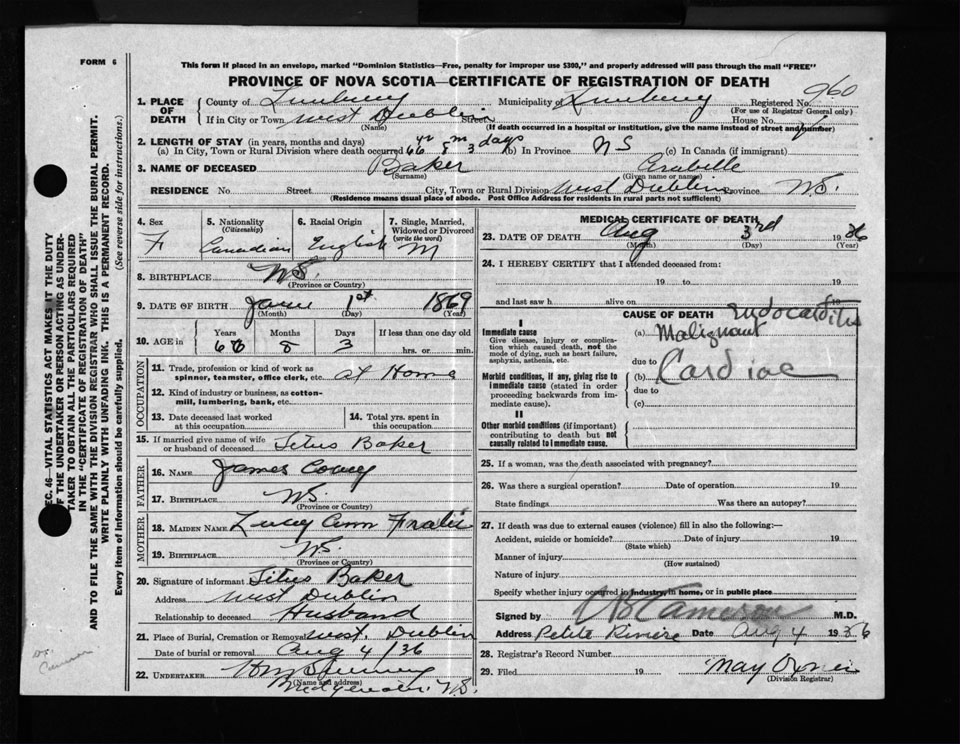 FORM 6
This form if placed in an envelope, marked "Dominion Statistics—Free, penalty for improper use $300," and properly addressed will pass through the mail "FREE"
PROVINCE OF NOVA SCOTIA—CERTIFICATE OF REGISTRATION OF DEATH
SEC. 46—VITAL STATISTICS ACT MAKES IT THE DUTY
OF THE UNDERTAKER OR PERSON ACTING AS UNDER-
TAKER TO OBTAIN ALL THE PARTICULARS REQUIRED
IN THE "CERTIFICATE OF REGISTRATION OF DEATH"
AND TO FILE THE SAME WITH THE DIVISION REGISTRAR WHO SHALL ISSUE THE BURIAL PERMIT.
WRITE PLAINLY WITH UNFADING INK. THIS IS A PERMANENT RECORD.
Every item of information should be carefully supplied. (See reverse side for instructions.)
1. PLACE OF DEATH County of Lunenburg Municipality of Lunenburg Registered No. 960
(For use of Registrar General only)
If in City or Town West Dublin Street House No.
(Name) (If death occurred in a hospital or institution, give the name instead of street and number)
2. LENGTH OF STAY (in years, months and days)
(a) In City, Town or Rural Division where death occurred 66 yr 8 m 3 days (b) In Province NS (c) In Canada (if immigrant)
3. NAME OF DECEASED Baker Arabille
(Surname) (Given name or names)
RESIDENCE No. Street City, Town or Rural Division West Dublin Province N.S.
(Residence means usual place of abode. Post Office Address for residents in rural parts not sufficient)
4. Sex 5. Nationality (Citizenship) 6. Racial Origin 7. Single, Married, Widowed or Divorced (write the word)
F Canadian English M
8. BIRTHPLACE N.S.
(Province or Country)
9. DATE OF BIRTH 1st 1869
(Month) (Day) (Year)
10. AGE in Years Months Days If less than one day old
66 8 3 hrs. or min.
OCCUPATION
11. Trade, profession or kind of work as spinner, teamster, office clerk, etc. at Home
12. Kind of industry or business, as cotton-mill, lumbering, bank, etc.
13. Date deceased last worked at this occupation 14. Total yrs. spent in this occupation
15. If married give name of wife or husband of deceased Titus Baker
FATHER
16. NAME James Conny
17. BIRTHPLACE N.S.
(Province or Country)
MOTHER
18. MAIDEN NAME Lucy Ann
19. BIRTHPLACE N.S.
(Province or Country)
20. Signature of informant Titus Baker
Address West Dublin
Relationship to deceased Husband
21. Place of Burial, Cremation or Removal West Dublin
Date of burial or removal Aug 4/36
22. UNDERTAKER
(Name and address)
Bridgewater. N.S.
MEDICAL CERTIFICATE OF DEATH
23. DATE OF DEATH Aug 3rd 1936
(Month) (Day) (Year)
24. I HEREBY CERTIFY that I attended deceased from:
19 to 19
and last saw h alive on 19
CAUSE OF DEATH
I
Immediate cause
Give disease, injury or complication which caused death, not the mode of dying, such as heart failure, asphyxia, asthenia, etc.
(a) Malignant Endocarditis
due to
Morbid conditions, if any, giving rise to immediate cause (stated in order proceeding backwards from immediate cause).
(b) Cardiac
due to
(c)
II
Other morbid conditions (if important) contributing to death but not causally related to immediate cause.
25. If a woman, was the death associated with pregnancy?
26. Was there a surgical operation? Date of operation 19
State findings Was there an autopsy?
27. If death was due to external causes (violence) fill in also the following:—
Accident, suicide or homicide? Date of injury 19
(State which)
Manner of injury
(How sustained)
Nature of injury
Specify whether injury occurred in industry, in home, or in public place
Signed by Cameron M.D.
Address Petite Riviere Date Aug 4 1936
28. Registrar's Record Number
29. Filed 19 May
(Division Registrar)